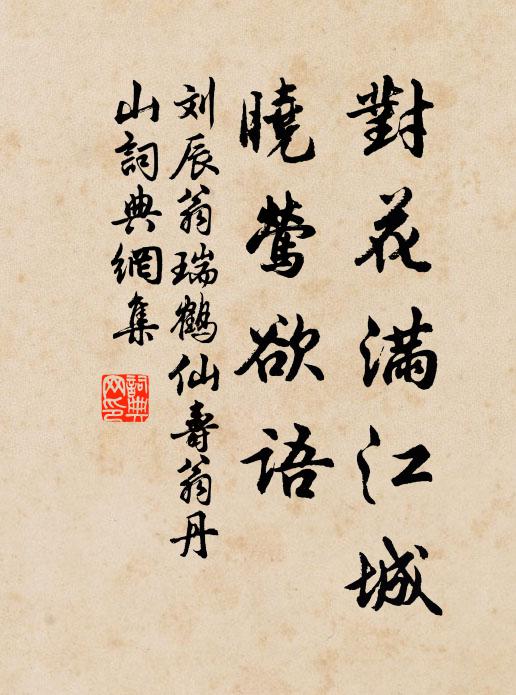 對花滿江城
曉鶯欲語
刘辰翁瑞鶴仙寿翁丹
山詞典網集
詞典网印